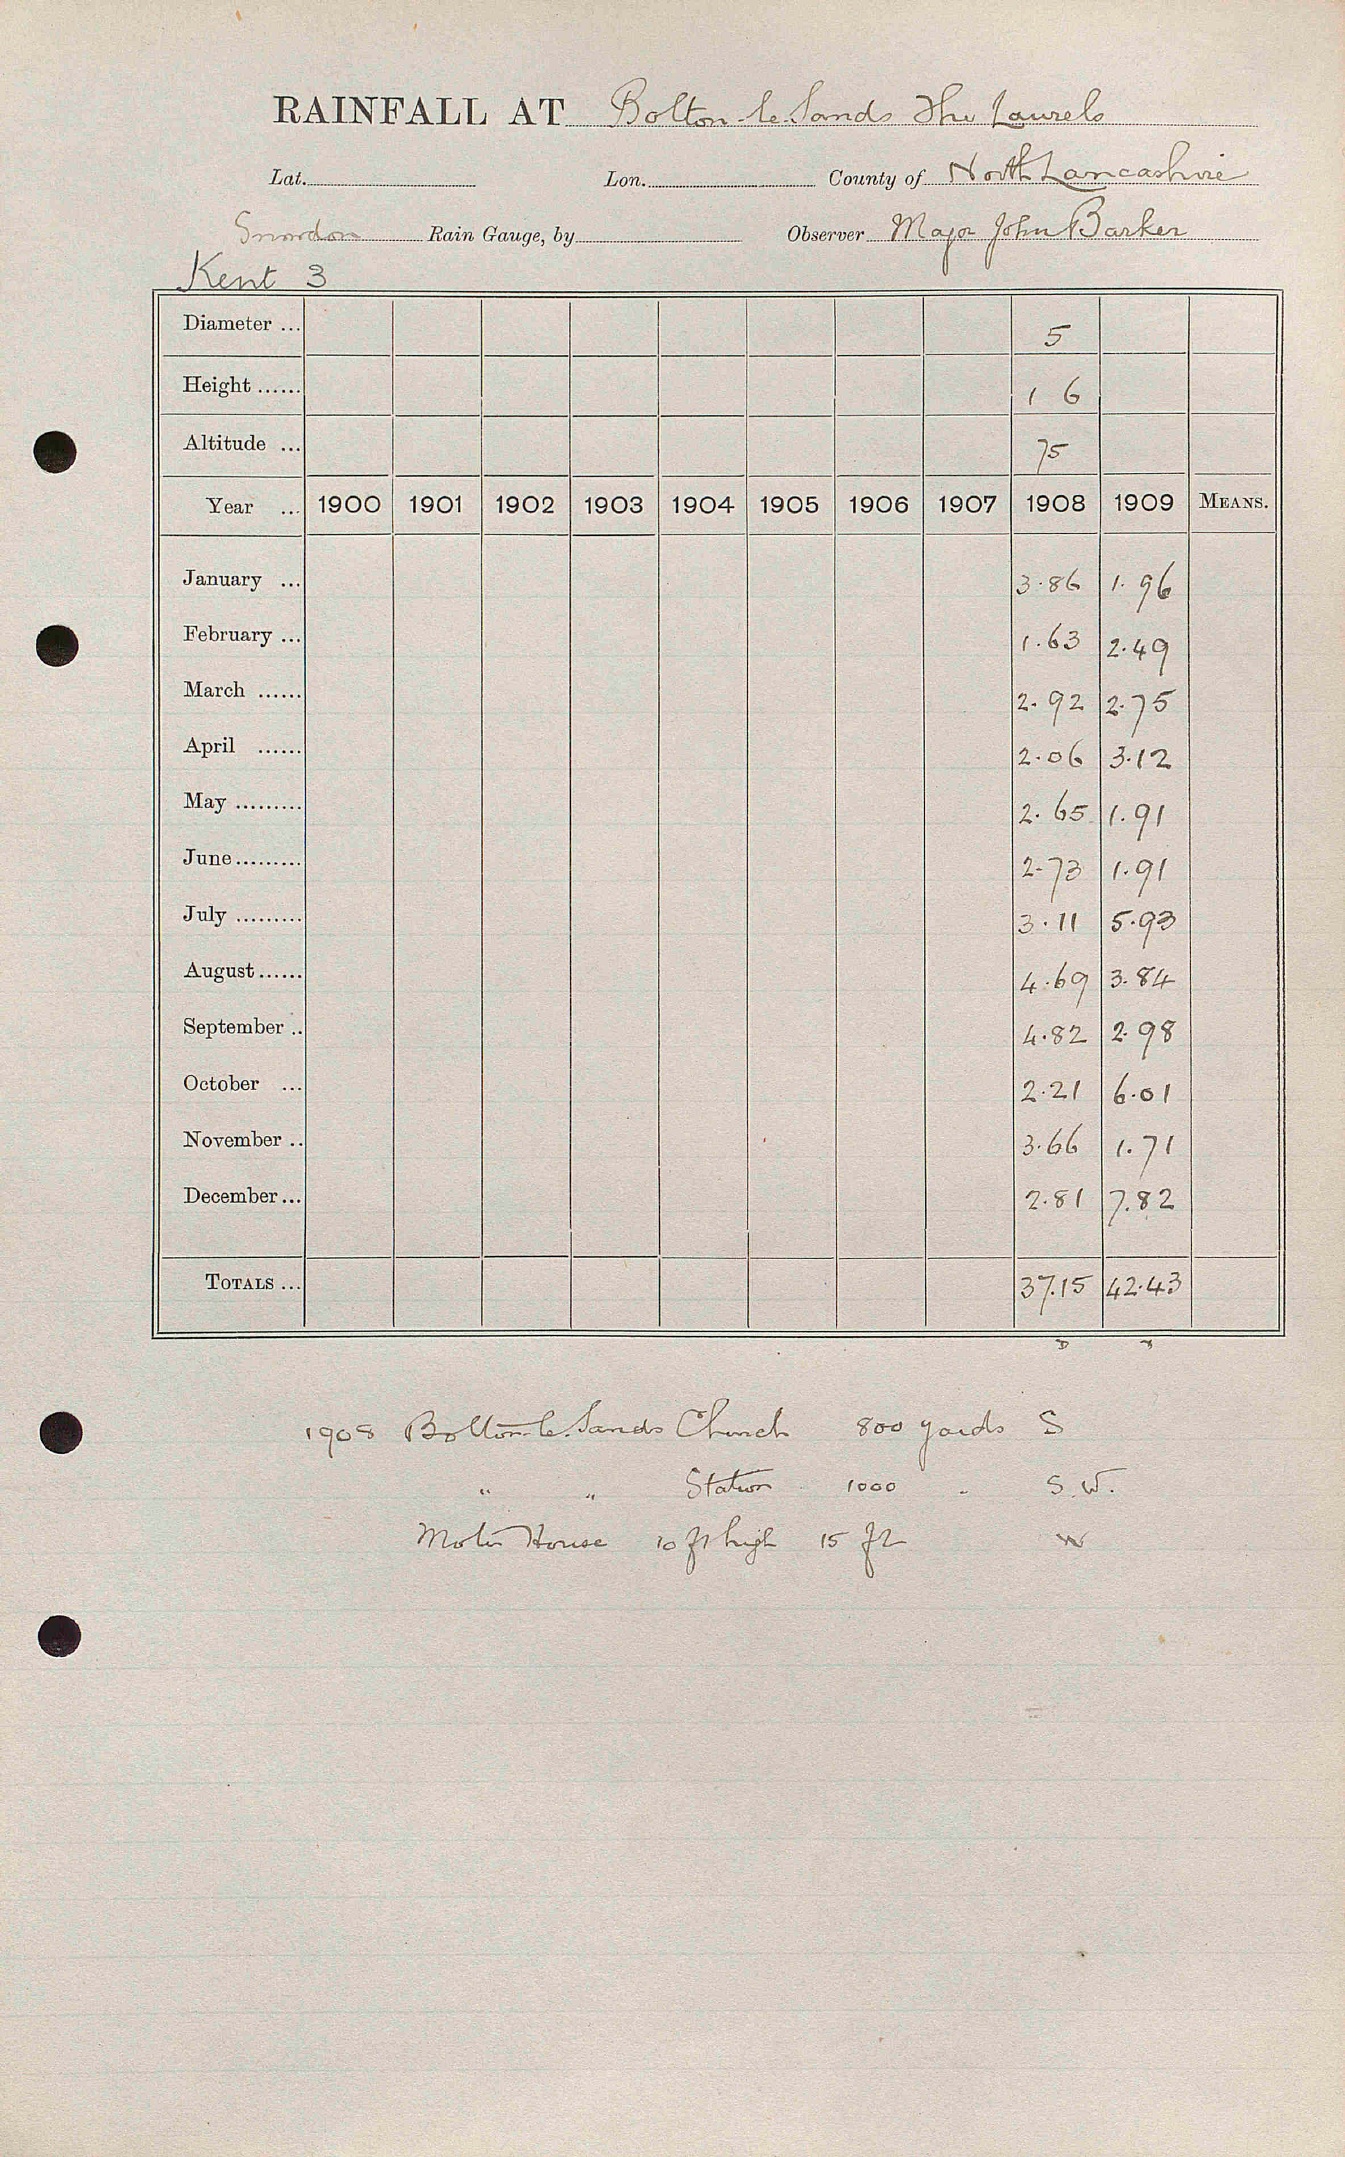 RAINFALL AT Bolton-le-Sands The Laurels
Lat. Lon. County of North Lancashire
Snowdon Rain Gauge, by Observer Major John Barker
Kent 3
Diameter ... 5
Height ...... 1 6
Altitude ... 75
Year ... 1900 1901 1902 1903 1904 1905 1906 1907 1908 1909 MEANS.
January ... 3.86 1.96
February ... 1.63 2.49
March ...... 2.92 2.75
April ...... 2.06 3.12
May ......... 2.65 1.91
June ......... 2.73 1.91
July ......... 3.11 5.93
August ...... 4.69 3.84
September .. 4.82 2.98
October ... 2.21 6.01
November .. 3.66 1.71
December ... 2.81 7.82
TOTALS ... 37.15 42.43
1908 Bolton-le-Sands Church 800 yards S
" " Station 1000 " S.W.
Motor House 10 ft high 15 ft W